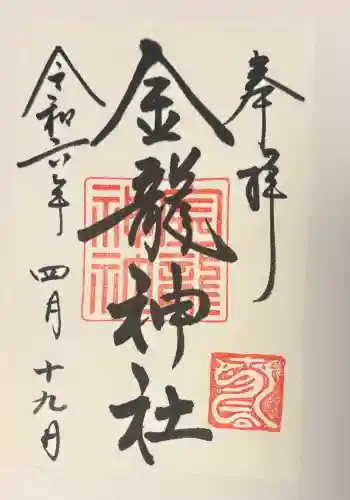 奉拝
金龍神社
金龍神社
令和六年 四月十九日